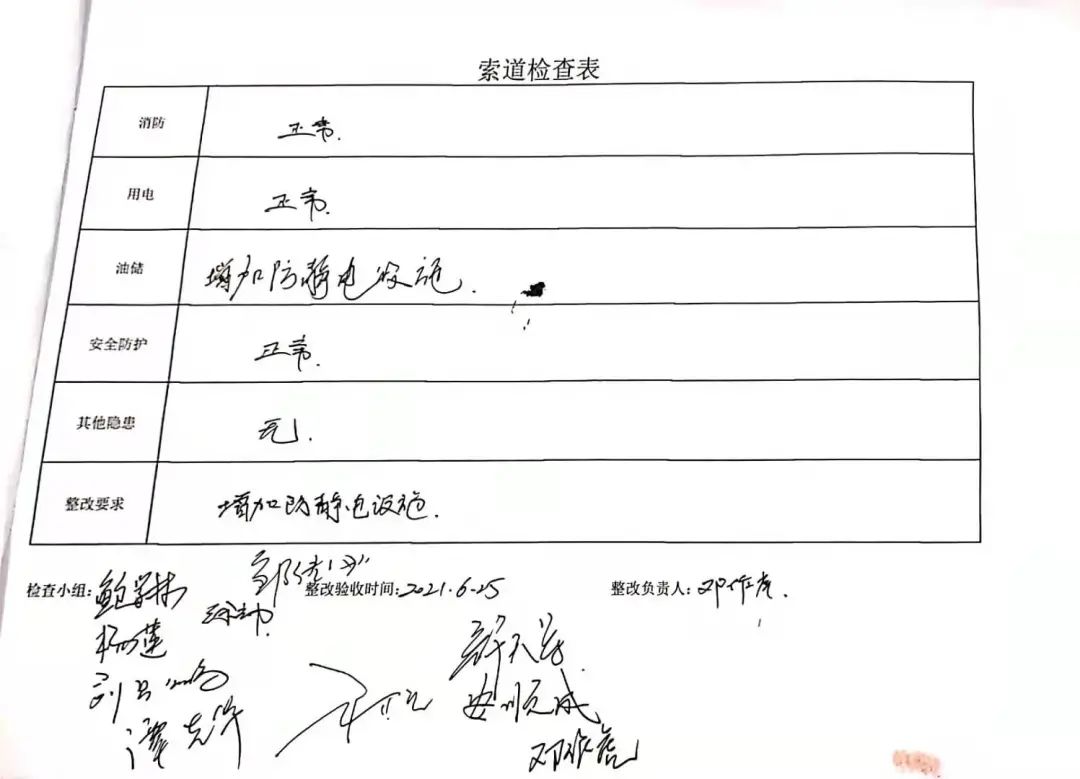 索道检查表
消防 正常.
用电 正常.
油储 增加防静电设施.
安全防护 正常.
其他隐患 无.
整改要求 增加防静电设施.
检查小组: 整改验收时间:2021.6-25 整改负责人:邓作虎.
杨莲
谭克华
安顺成
邓作虎